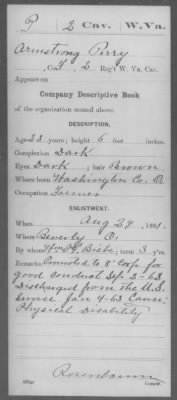 P 2 Cav. W.Va.
Armstrong Perry
Co. F, 2 Reg't W. Va. Cav.
Appears on
Company Descriptive Book
of the organization named above.
DESCRIPTION.
Age 23 years; height 6 feet inches.
Complexion Dark
Eyes Dark ; hair Brown
Where born Washington Co. O.
Occupation Farmer
ENLISTMENT.
When Aug 29 , 1861.
Where Beverly O.
By whom Wm H. ; term 3 y'rs.
Remarks: Promoted to 8" Corp. for
good conduct. Sep. 2-62
Discharged from the U.S.
Service Jan 4-63 Cause:
Physical Disability
Copyist.